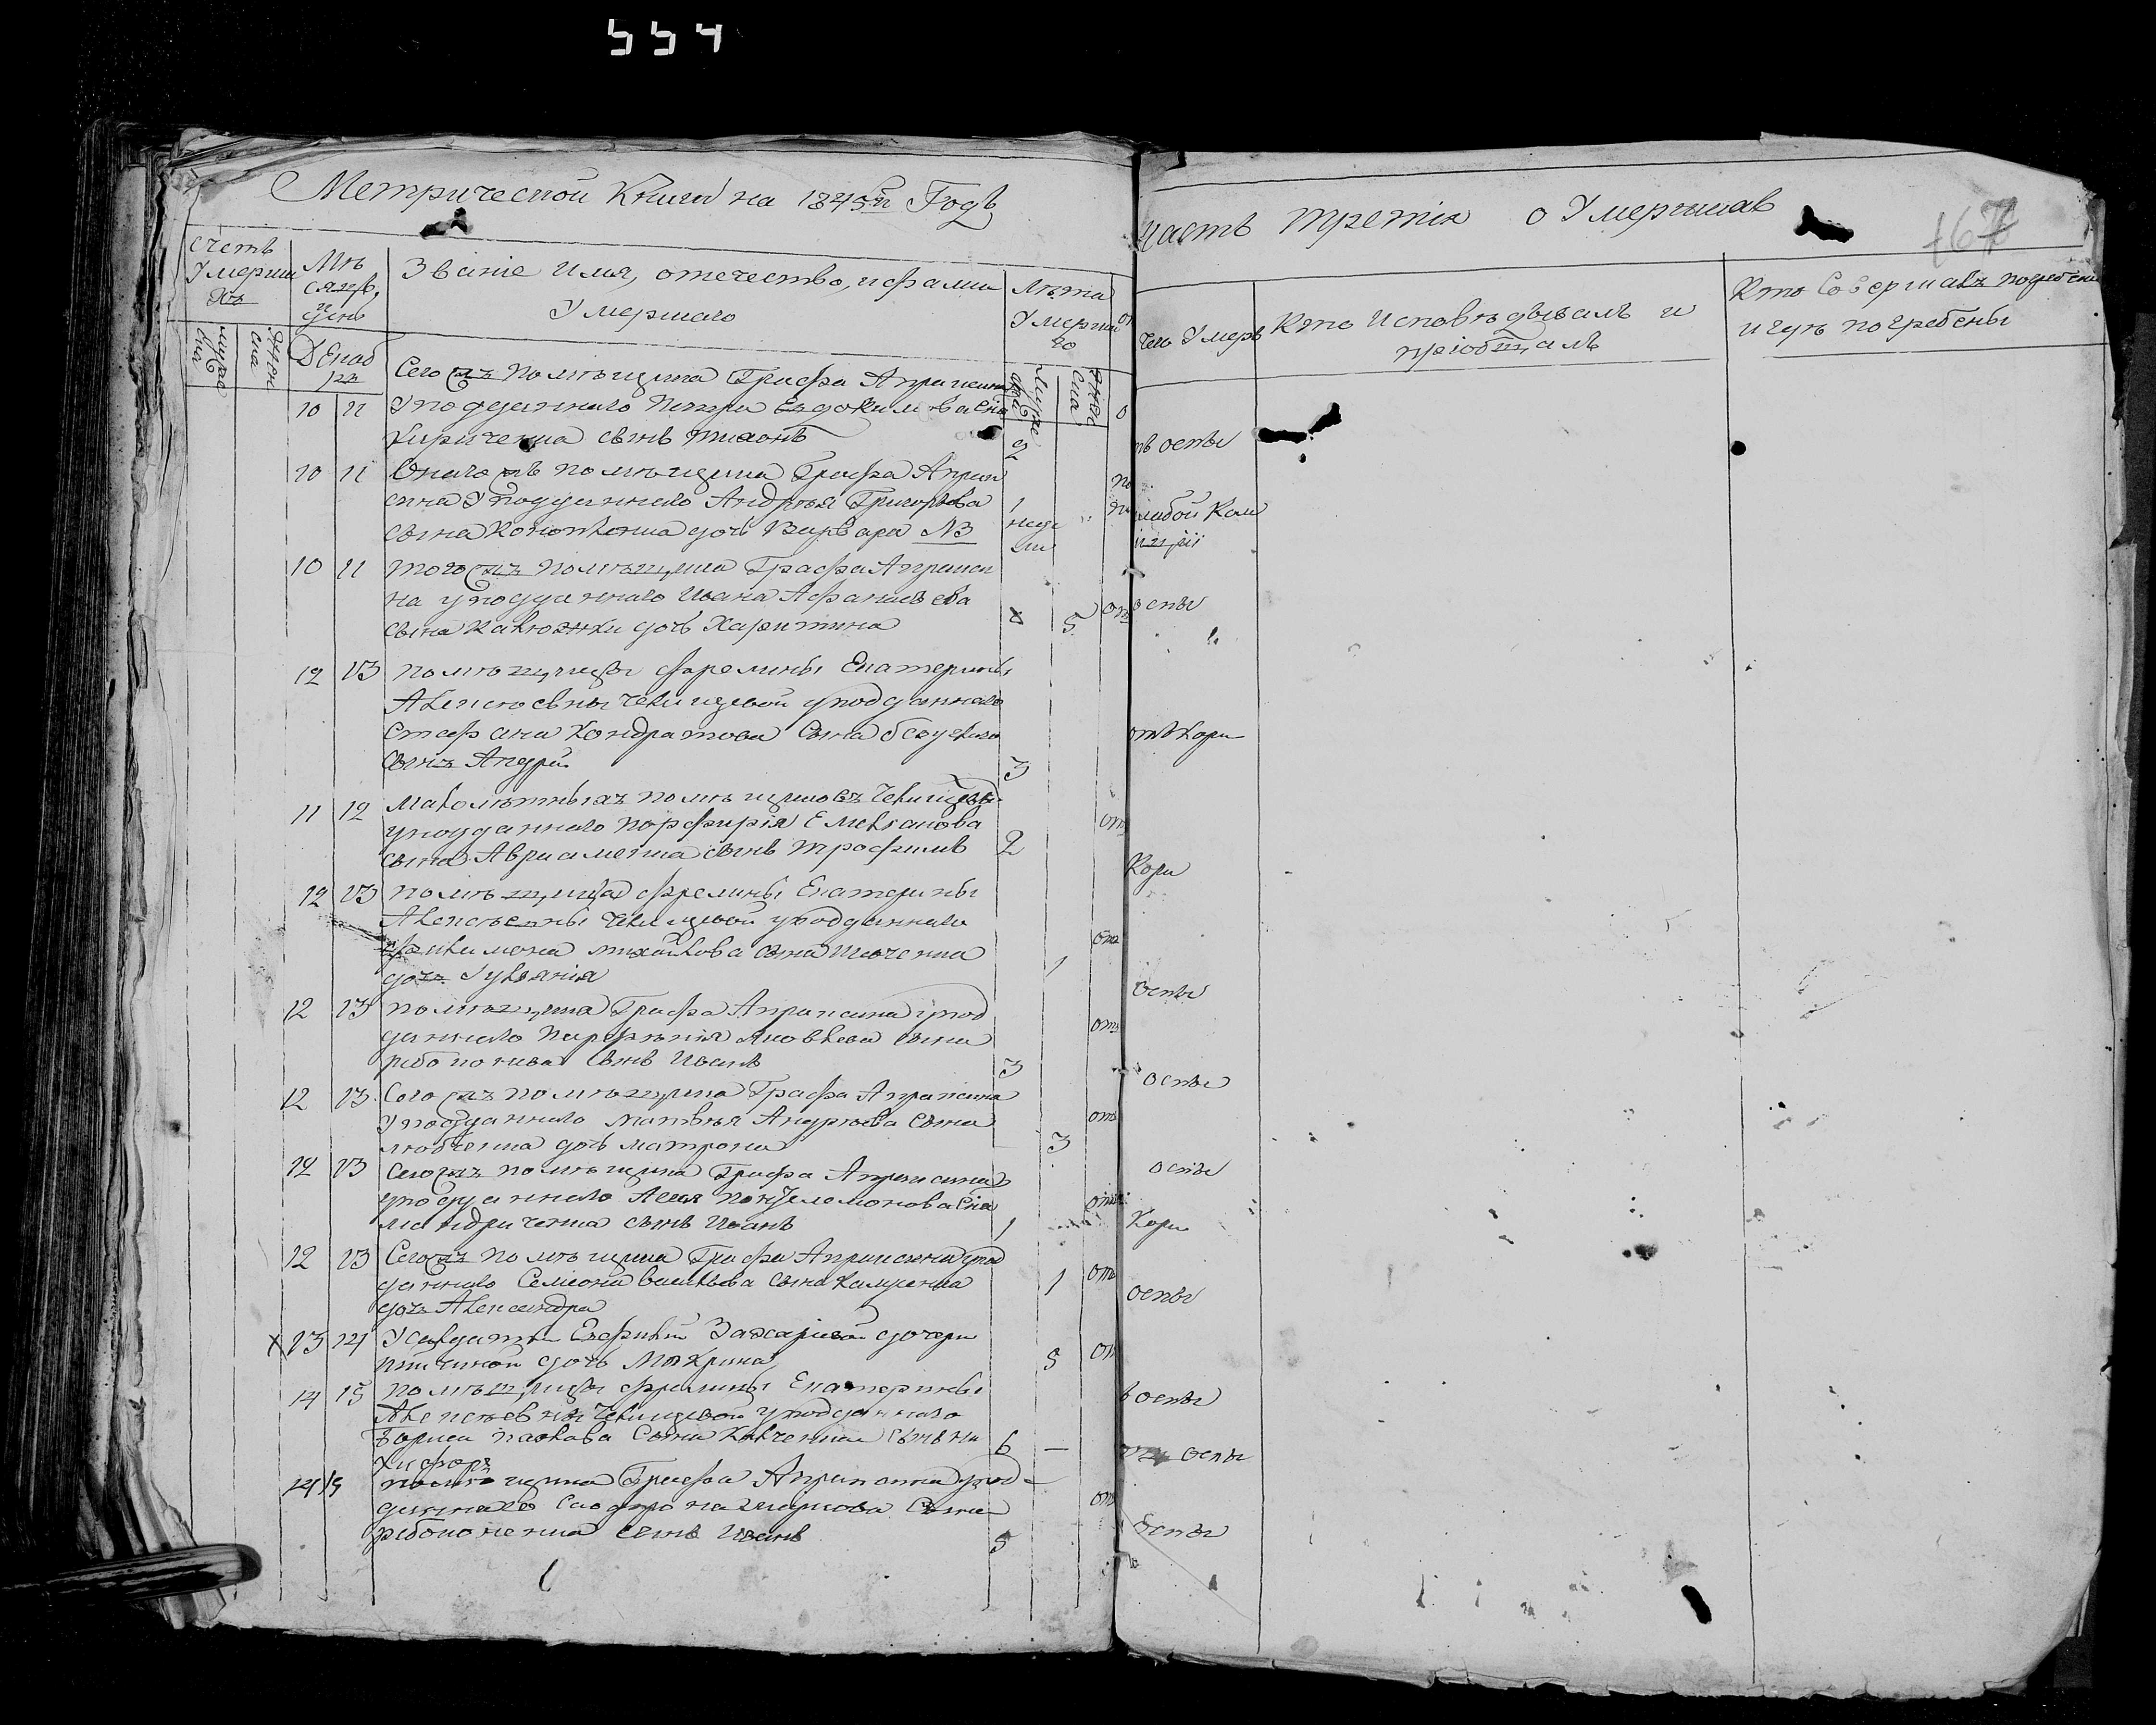 554
Метрической Книги на 1845й Годъ
часть третія о Умершихъ
167
счетъ Умерши хъ
Мѣ сяцъ, и день
Званіе Имя, отечество, и фамилія Умершаго
Лѣта Умерша го
чего Умеръ
Кто Исповѣдывалъ и пріобщалъ
Кто Совершалъ погребеніе и гдѣ погребены
муже ска
женс ска
Декаб рь
Сего села помѣщика Графа Апраксина
10 11 У подданнаго Петра Евдокимова сна
Кириченка сынъ Тихонъ 2 отъ оспы
10 11 Онаго села помѣщика Графа Апрак
сина У подданнаго Андрѣя Григорьева
сына дочь Варвара №3 1 неде ли слабой
10 11 того села помѣщика Графа Апракси
на у подданнаго Ивана Афанасьева
сына дочь Харитина 5 от оспы
12 13 помѣщицы фрелины Екатерины
Алексѣевны Челищевой у подданнаго
Стефана Кондратова сына
сынъ Андрей 3 отъ кори
11 12 Малолѣтныхъ помѣщиковъ Челищевыхъ
у подданнаго Порфирія Емельянова
сына Авраменка сынъ Трофимъ 2 от Кори
12 13 помѣщицы фрелины Екатерины
Алексѣевны Челищевой у подданнаго
Филимона Михайлова сына Шевченка
дочь Іуліянія 1 от оспы
12 13 помѣщика Графа Апраксина у под
даннаго Парфенія Яковлева сына
сынъ Иванъ 3 от оспы
12 13 Сего села помѣщика Графа Апраксина
У подданнаго Матвѣя Андрѣева Сына
Любченка дочь Матрона 3 от оспы
12 13 Сего села помѣщика Графа Апраксина
у подданнаго Пантелемонова сна
Мандриченка сынъ Иванъ 1 от Кори
12 13 Сего села помѣщика Графа Апраксина у под
даннаго Семеона Васильева сына
дочь Александра 1 от оспы
х 13 14 У солдатки Захаріевой дочери
дочь Макрина 5 от оспы
14 15 помѣщицы фрелины Екатерины
Алексѣевны Челищевой у подданнаго
Бориса Павлова Сына сынъ Ни
кифоръ 6 — от оспы
14 15 помѣщика Графа Апраксина у под
даннаго Сына
сынъ Иванъ 5 от оспы